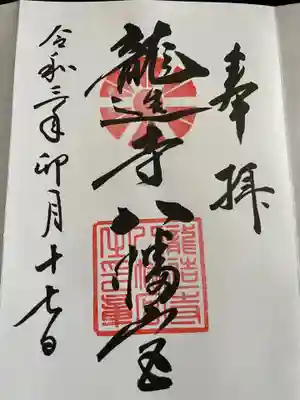 奉拝
龍造寺八幡宮
令和三年卯月十七日